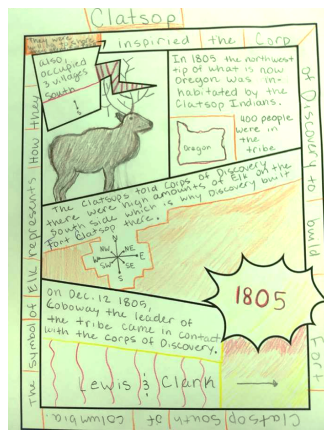 Clatsop
The symbol of Elk represents How they
inspiried the Corp
of Discovery to build Fort
Clatsop South of columbia.
also
occupied
3 villages
south
In 1805 the northwest
tip of what is now
Oregon was in-
habitated by the
Clatsop Indians.
Oregon
400 people
were in
the
tribe
The Clatsops told Corps of Discovery
there were high amounts of Elk on the
South side which is why Discovery built
Fort Clatsop there.
N
NW NE
W E
SW SE
S
1805
on Dec. 12 1805,
Coboway the leader of
the tribe came in contact
with the corps of Discovery.
Lewis & Clark